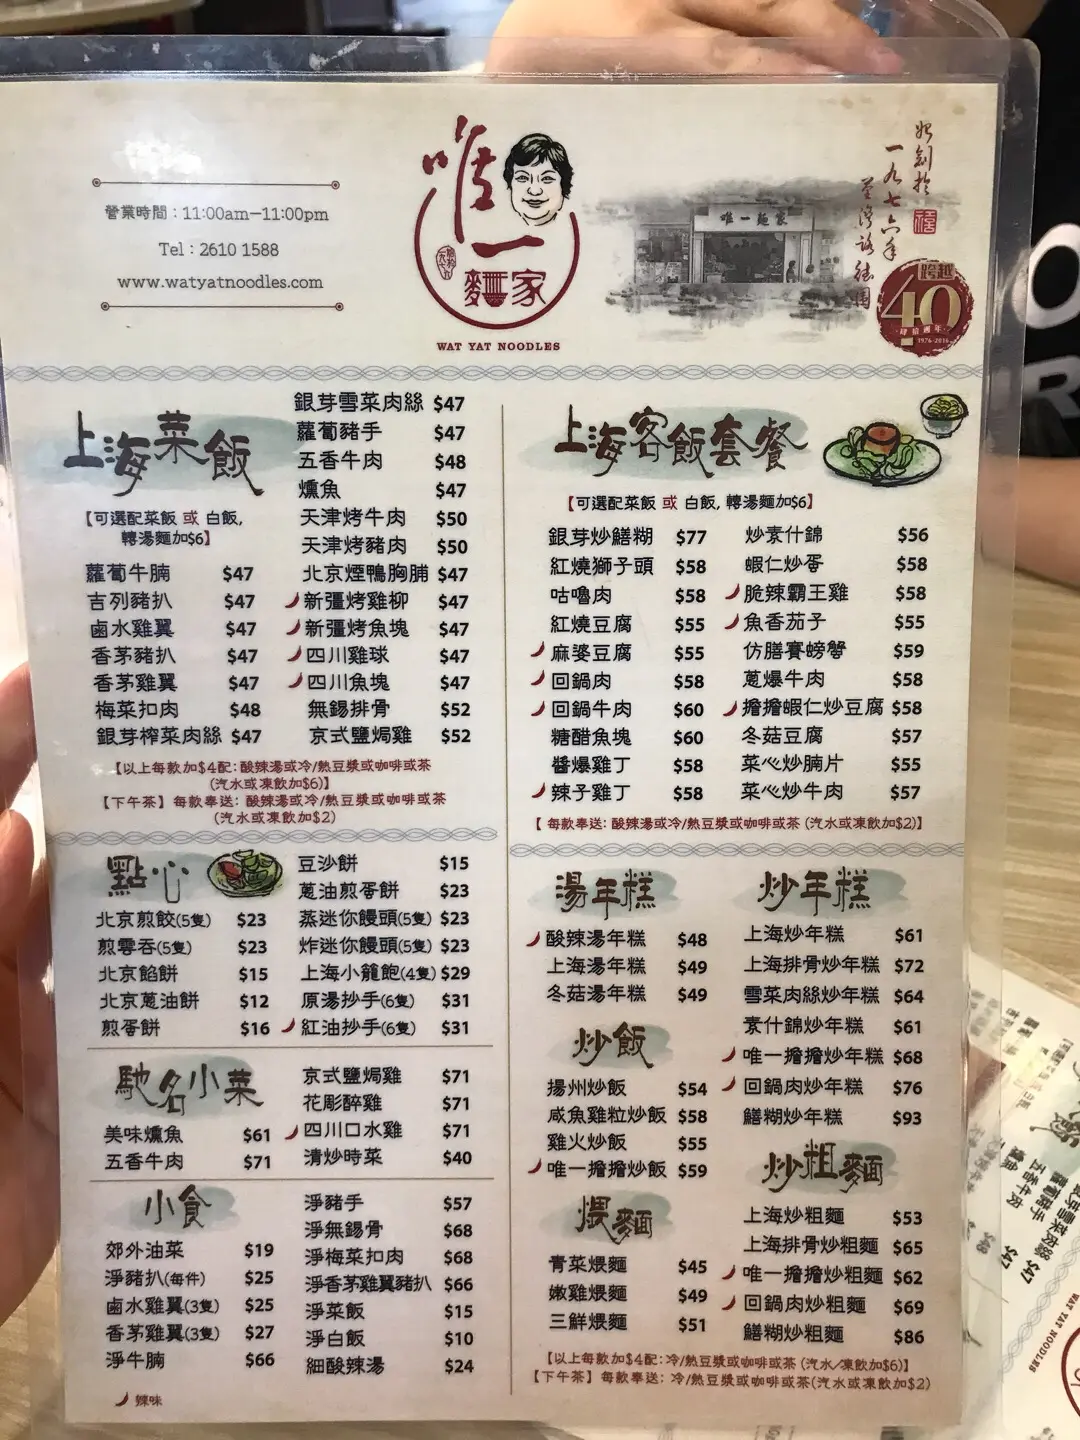 營業時間：11:00am－11:00pm
Tel：2610 1588
www.watyatnoodles.com
唯一
麵家
WAT YAT NOODLES
唯一麵家
始創於
一九七六年
荃灣路德圍
跨越
40
肆拾週年
1976-2016
上海菜飯
【可選配菜飯 或 白飯,
轉湯麵加$6】
蘿蔔牛腩 $47
吉列豬扒 $47
鹵水雞翼 $47
香茅豬扒 $47
香茅雞翼 $47
梅菜扣肉 $48
銀芽榨菜肉絲 $47
銀芽雪菜肉絲 $47
蘿蔔豬手 $47
五香牛肉 $48
燻魚 $47
天津烤牛肉 $50
天津烤豬肉 $50
北京煙鴨胸脯 $47
新彊烤雞柳 $47
新彊烤魚塊 $47
四川雞球 $47
四川魚塊 $47
無錫排骨 $52
京式鹽焗雞 $52
【以上每款加$4配: 酸辣湯或冷/熱豆漿或咖啡或茶
(汽水或凍飲加$6)】
【下午茶】每款奉送: 酸辣湯或冷/熱豆漿或咖啡或茶
(汽水或凍飲加$2)
點心
北京煎餃(5隻) $23
煎雲吞(5隻) $23
北京餡餅 $15
北京蔥油餅 $12
煎蛋餅 $16
豆沙餅 $15
蔥油煎蛋餅 $23
蒸迷你饅頭(5隻) $23
炸迷你饅頭(5隻) $23
上海小籠飽(4隻) $29
原湯抄手(6隻) $31
紅油抄手(6隻) $31
馳名小菜
美味燻魚 $61
五香牛肉 $71
京式鹽焗雞 $71
花彫醉雞 $71
四川口水雞 $71
清炒時菜 $40
小食
郊外油菜 $19
淨豬扒(每件) $25
鹵水雞翼(3隻) $25
香茅雞翼(3隻) $27
淨牛腩 $66
淨豬手 $57
淨無錫骨 $68
淨梅菜扣肉 $68
淨香茅雞翼豬扒 $66
淨菜飯 $15
淨白飯 $10
細酸辣湯 $24
辣味
上海客飯套餐
【可選配菜飯 或 白飯, 轉湯麵加$6】
銀芽炒鱔糊 $77
紅燒獅子頭 $58
咕嚕肉 $58
紅燒豆腐 $55
麻婆豆腐 $55
回鍋肉 $58
回鍋牛肉 $60
糖醋魚塊 $60
醬爆雞丁 $58
辣子雞丁 $58
炒素什錦 $56
蝦仁炒蛋 $58
脆辣霸王雞 $58
魚香茄子 $55
仿膳賽螃蟹 $59
蔥爆牛肉 $58
擔擔蝦仁炒豆腐 $58
冬菇豆腐 $57
菜心炒腩片 $55
菜心炒牛肉 $57
【 每款奉送: 酸辣湯或冷/熱豆漿或咖啡或茶 (汽水或凍飲加$2)】
湯年糕
酸辣湯年糕 $48
上海湯年糕 $49
冬菇湯年糕 $49
炒飯
揚州炒飯 $54
咸魚雞粒炒飯 $58
雞火炒飯 $55
唯一擔擔炒飯 $59
煨麵
青菜煨麵 $45
嫩雞煨麵 $49
三鮮煨麵 $51
炒年糕
上海炒年糕 $61
上海排骨炒年糕 $72
雪菜肉絲炒年糕 $64
素什錦炒年糕 $61
唯一擔擔炒年糕 $68
回鍋肉炒年糕 $76
鱔糊炒年糕 $93
炒粗麵
上海炒粗麵 $53
上海排骨炒粗麵 $65
唯一擔擔炒粗麵 $62
回鍋肉炒粗麵 $69
鱔糊炒粗麵 $86
【以上每款加$4配: 冷/熱豆漿或咖啡或茶 (汽水/凍飲加$6)】
【下午茶】每款奉送: 冷/熱豆漿或咖啡或茶(汽水或凍飲加$2)
WAT YAT NOODLES